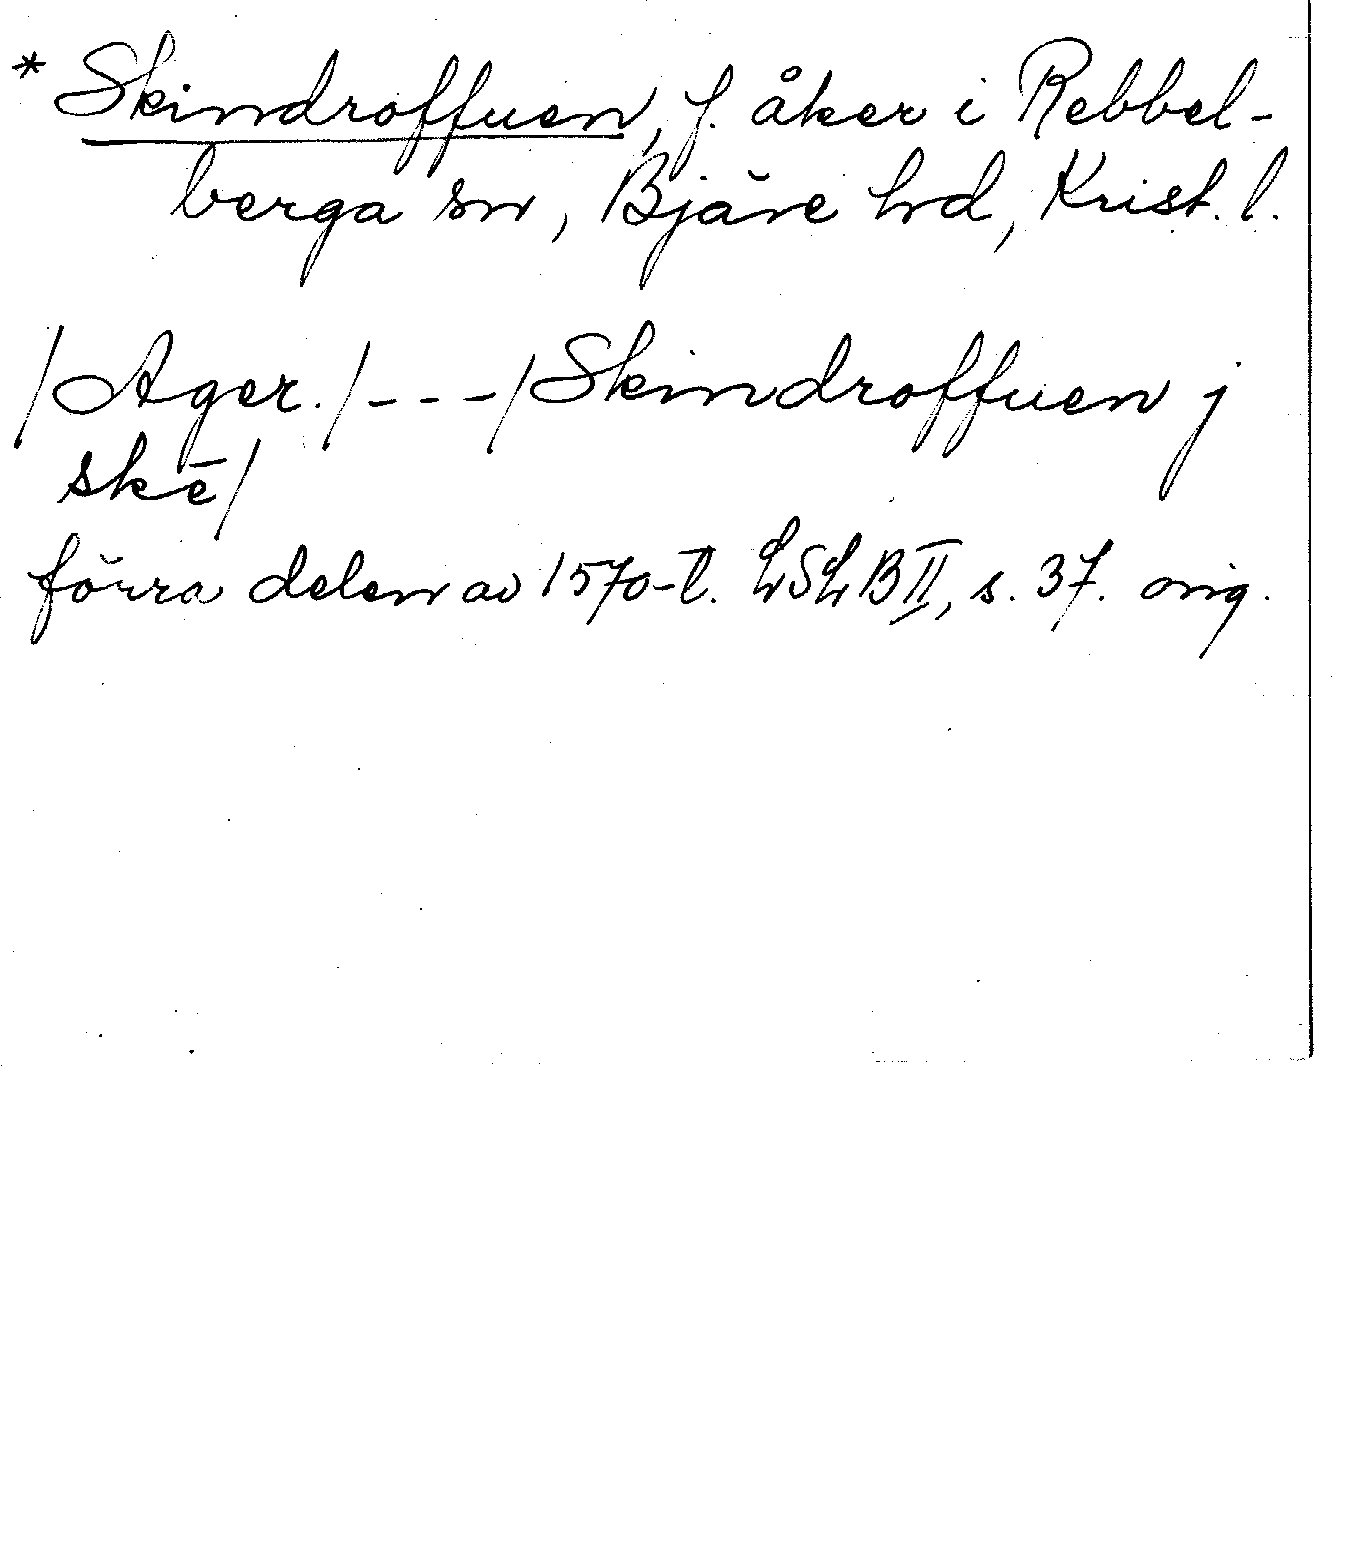 * Skindroffuen, f. åker i Rebbel-
berga sn, Bjäre hd, Krist. l.
/Ager./---/Skindroffuen j
skē/
förra delen av 1570-t. LSLB II, s. 37. orig.